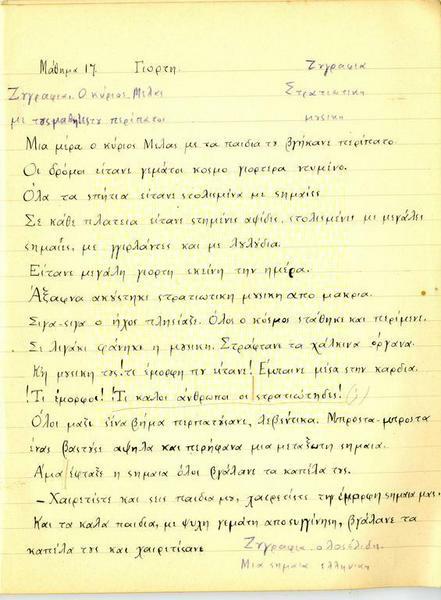 Μάθημα 17. Γιορτη. Ζυγραφια
Ζυγραφια. Ο κύριος Μελας Στρατιωτικη
με τυς μαθητες τυ περίπατο μυσικη
Μια μέρα ο κύριος Μελας με τα παιδια τυ βγήκανε περίπατο.
Οι δρόμοι είτανε γεμάτοι κοσμο γιορτερα ντυμένο.
Όλα τα σπήτια είτανε στολισμένα με σημαίες.
Σε κάθε πλατεια είτανε στημένες αψίδες, στολισμένες με μεγάλες
σημαίες, με γγιρλάντες και με λυλύδια.
Είτανε μεγάλη γιορτη εκείνη την ημέρα.
Άξαφνα ακύστηκε στρατιωτικη μυσικη απο μακρια.
Σιγα-σιγα ο ήχος πλησίαζε. Όλος ο κόσμος στάθηκε και περίμενε.
Σε λιγάκι φάνηκε η μυσικη. Στράφτανε τα χάλκινα όργανα.
Κη μυσικη της! τι έμορφη πυ είτανε! Έμπαινε μέσα στην καρδια.
!Τι έμορφοι! !Τι καλοι άνθρωποι οι στρατιώτηδες! (;)
Όλοι μαζι ένα βήμα περπατύσανε, λεβέντικα. Μπροστα-μπροστα
ένας βαστύσε αψηλα και περήφανα μια μεταξωτη σημαια.
Άμα έφταξε η σημαια όλοι βγάλανε τα καπέλα τυς.
– Χαιρετίστε και σεις παιδια μυ, χαιρετίστε την έμορφη σημαια μας.
Και τα καλα παιδια, με ψυχη γεμάτη απο συγγίνηση, βγάλανε τα
καπέλα τυς και χαιρετίσανε
Ζυγραφια ολοσέλιδη.
Μια σημαια ελληνικη